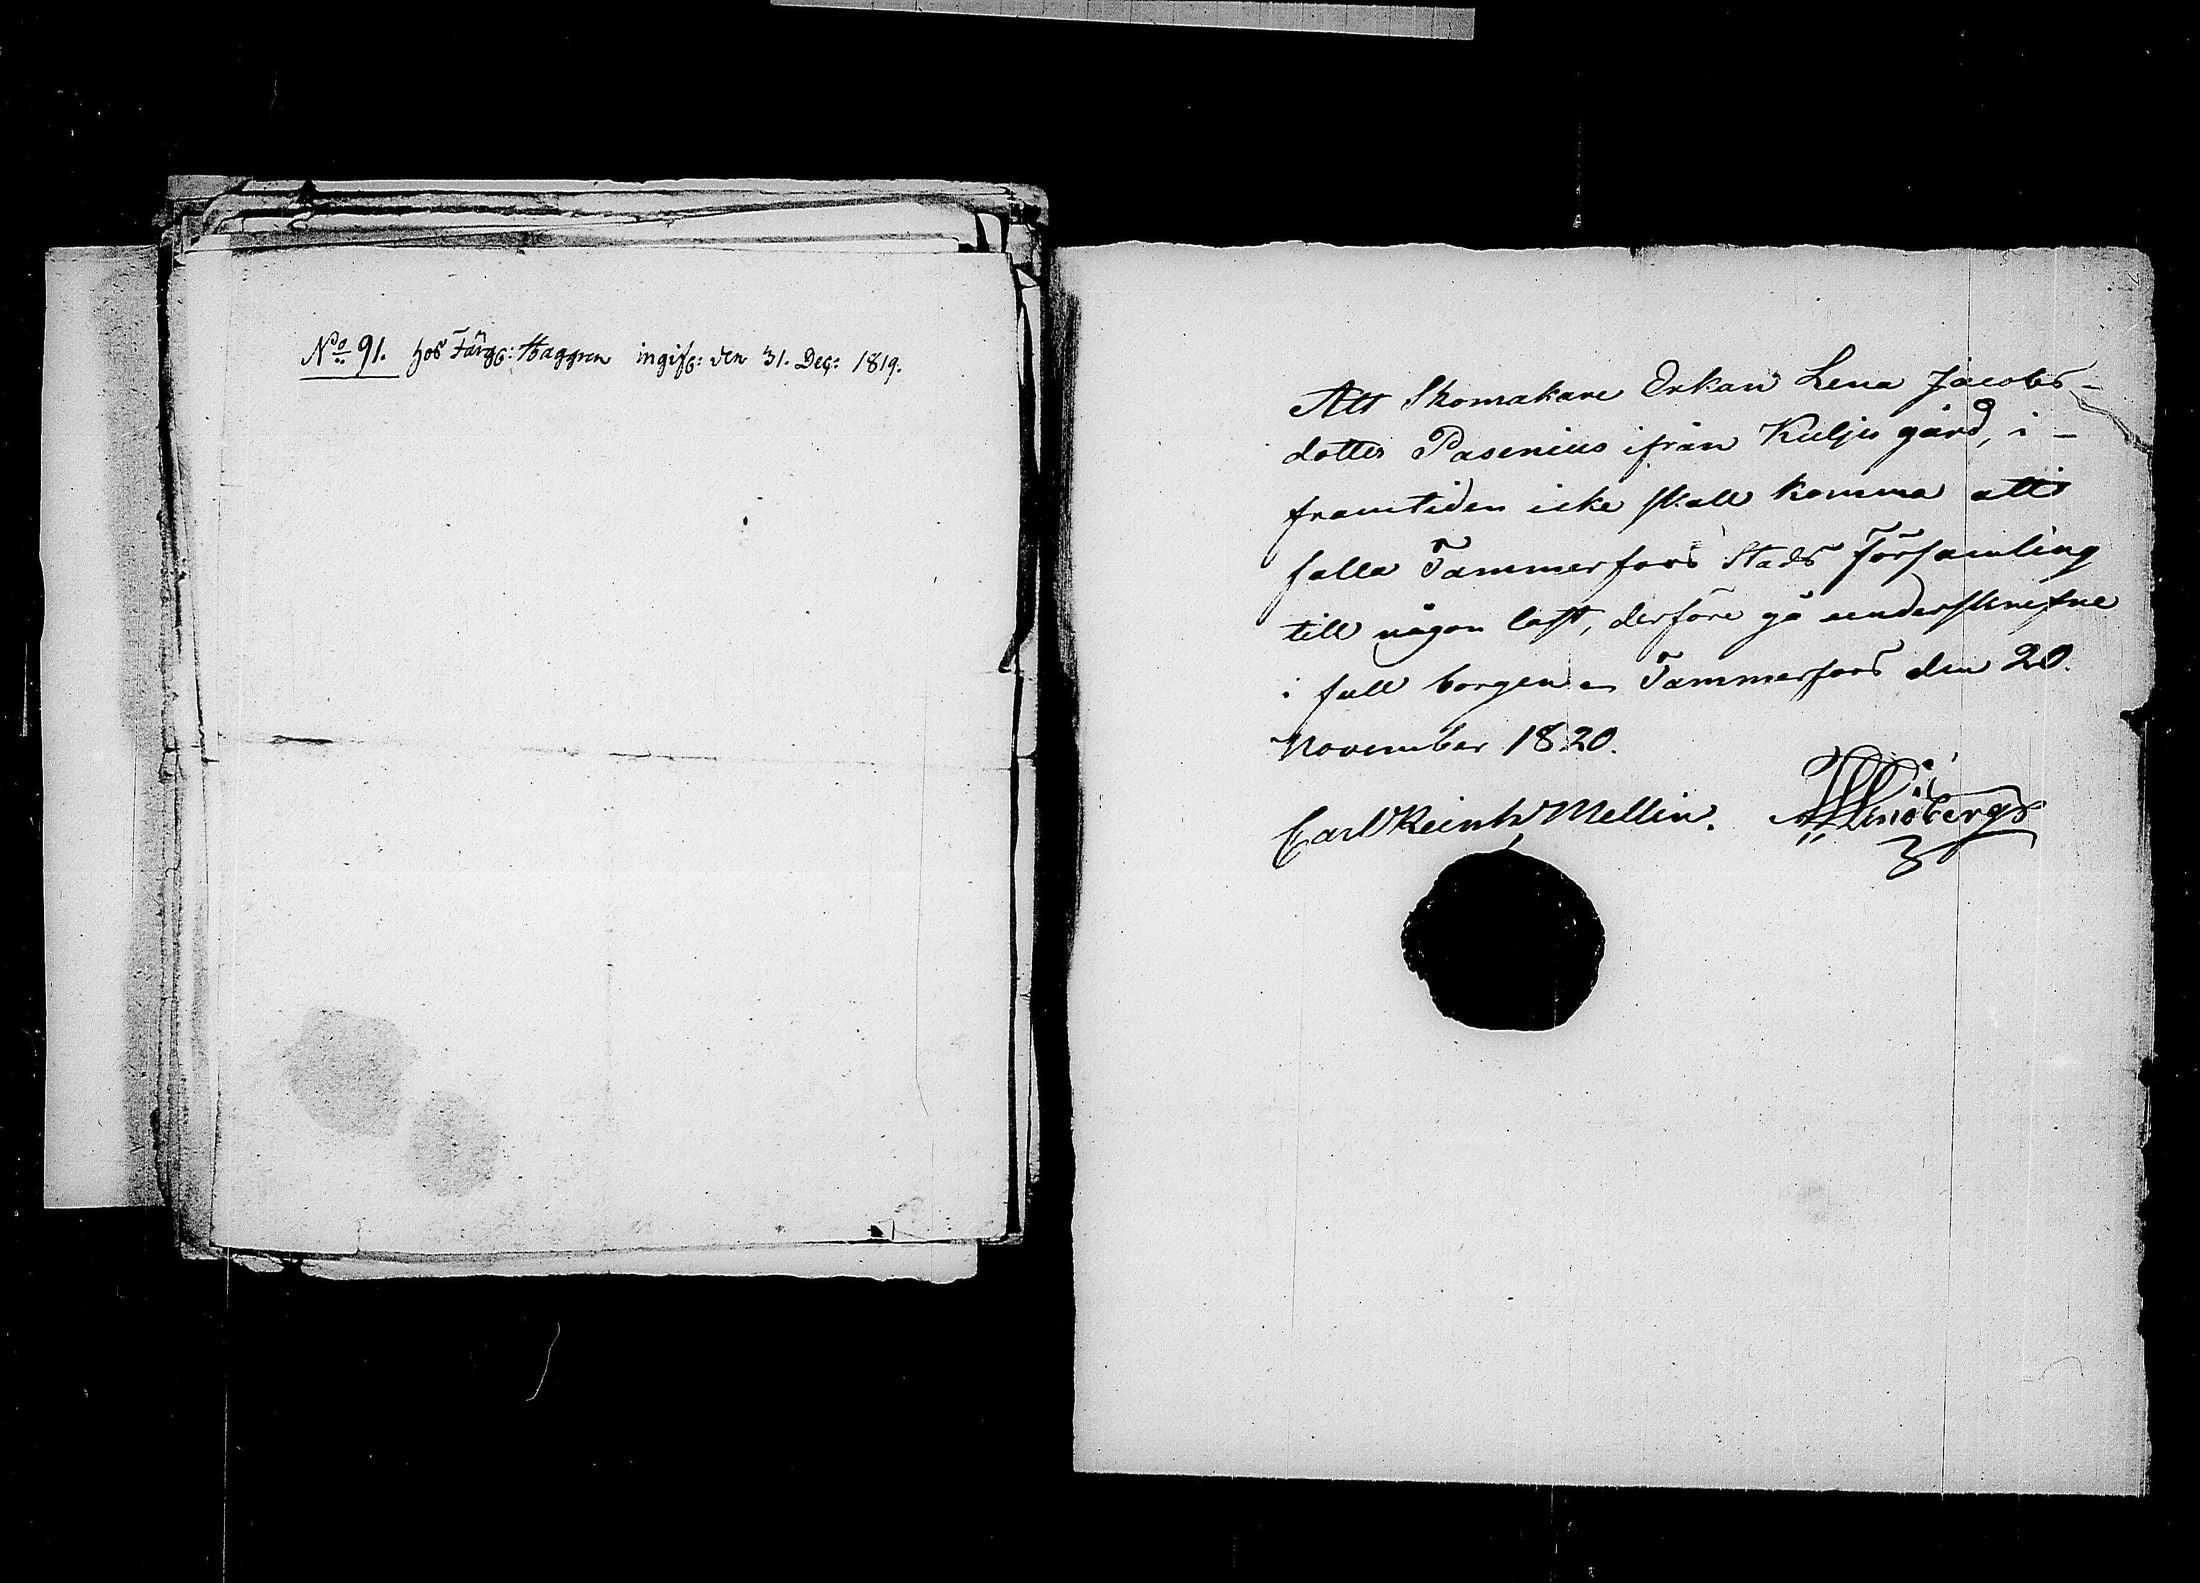 No 91. hos Färg: Haggren ingif: den 31. Dec: 1819.
Att Skomakare Enkan Lena Jacobs-
dotter Pasenius ifrån Kuljus gård, i-
framtiden icke skall komma att
falla Tammerfors Stads Församling
till någon last, derföre gå underskrefne
i full borgen. Tammerfors den 20.
November 1820.
Carl Reinh Mellin. Lindberg